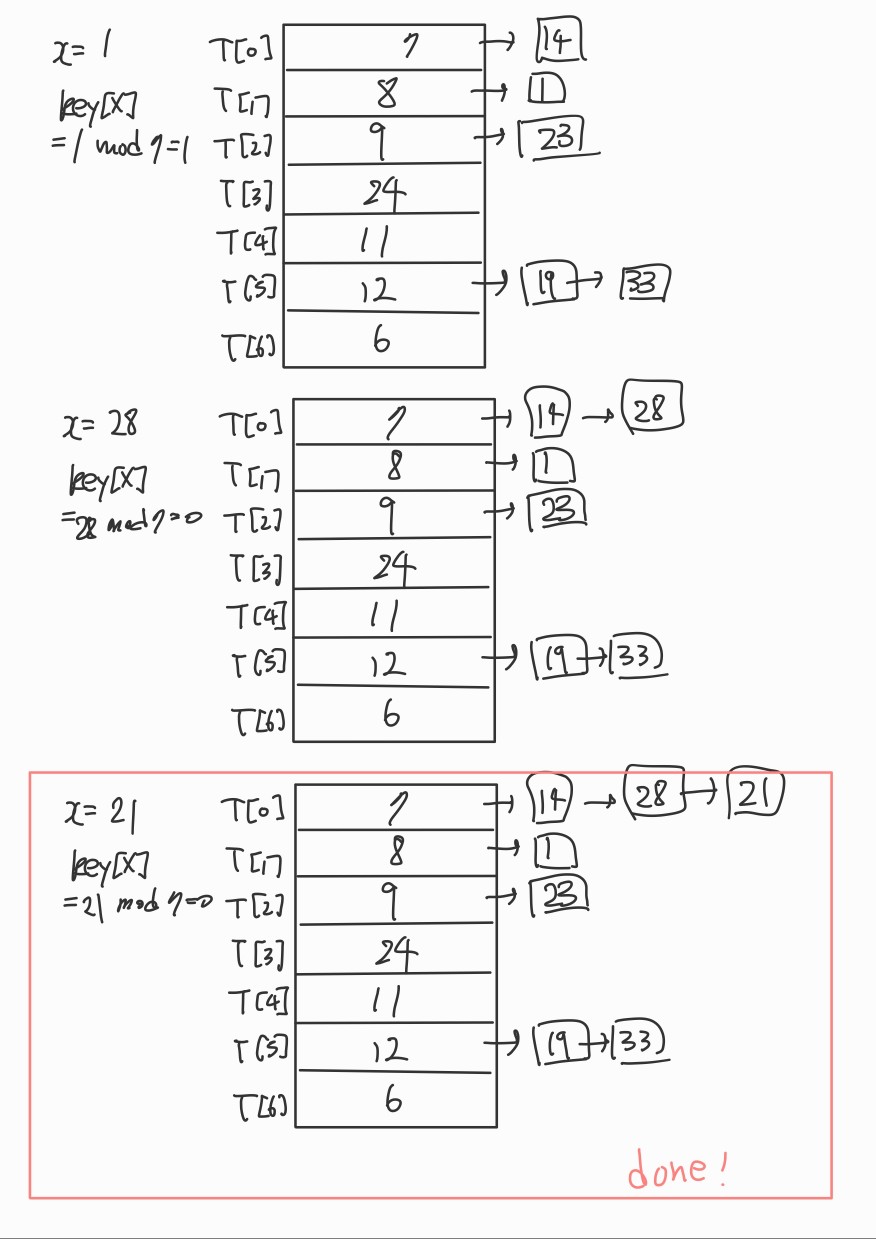 x= 1
key[x]
= 1 mod 7=1
T[0] 7 → 14
T[1] 8 → 1
T[2] 9 → 23
T[3] 24
T[4] 11
T[5] 12 → 19 → 33
T[6] 6
x= 28
key[x]
= 28 mod 7=0
T[0] 7 → 14 → 28
T[1] 8 → 1
T[2] 9 → 23
T[3] 24
T[4] 11
T[5] 12 → 19 → 33
T[6] 6
x= 21
key[x]
= 21 mod 7=0
T[0] 7 → 14 → 28 → 21
T[1] 8 → 1
T[2] 9 → 23
T[3] 24
T[4] 11
T[5] 12 → 19 → 33
T[6] 6
done!